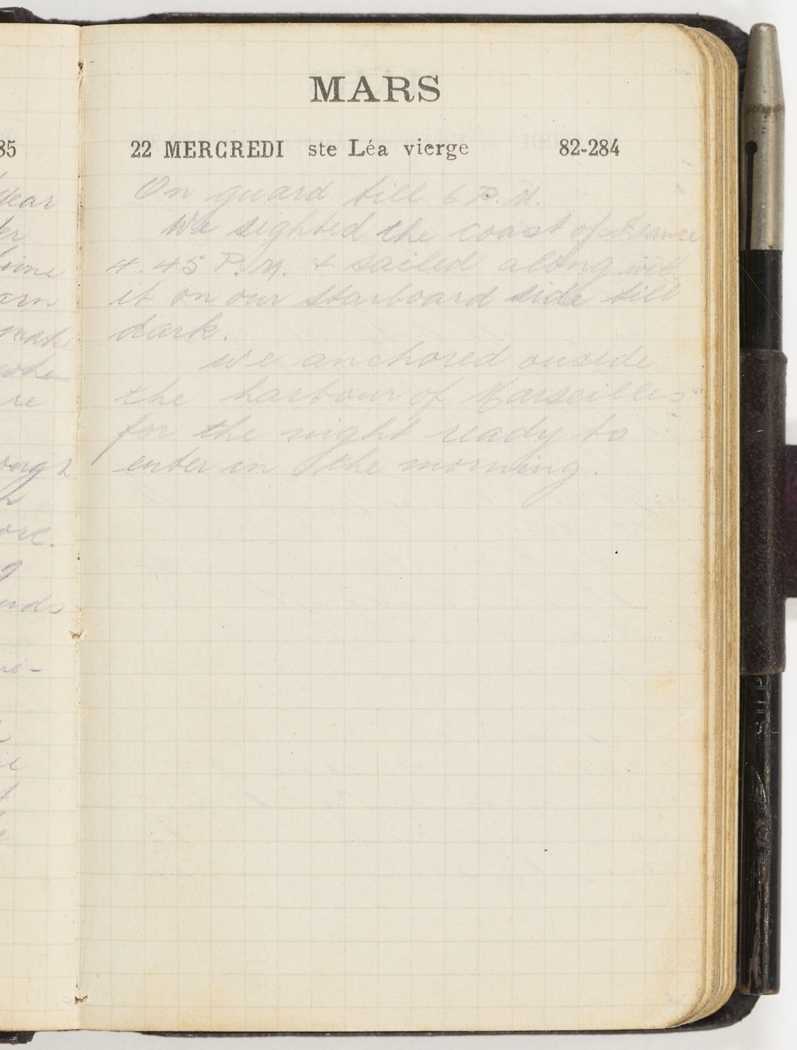 85
year
time
make
when
ore.
MARS
22 MERCREDI ste Léa vierge 82-284
On guard till 6 P.M.
We sighted the coast of France
4.45 P.M. & sailed along with
it on our starboard side till
dark.
We anchored ouside
the harbour of Marseilles
for the night ready to
enter in the morning.